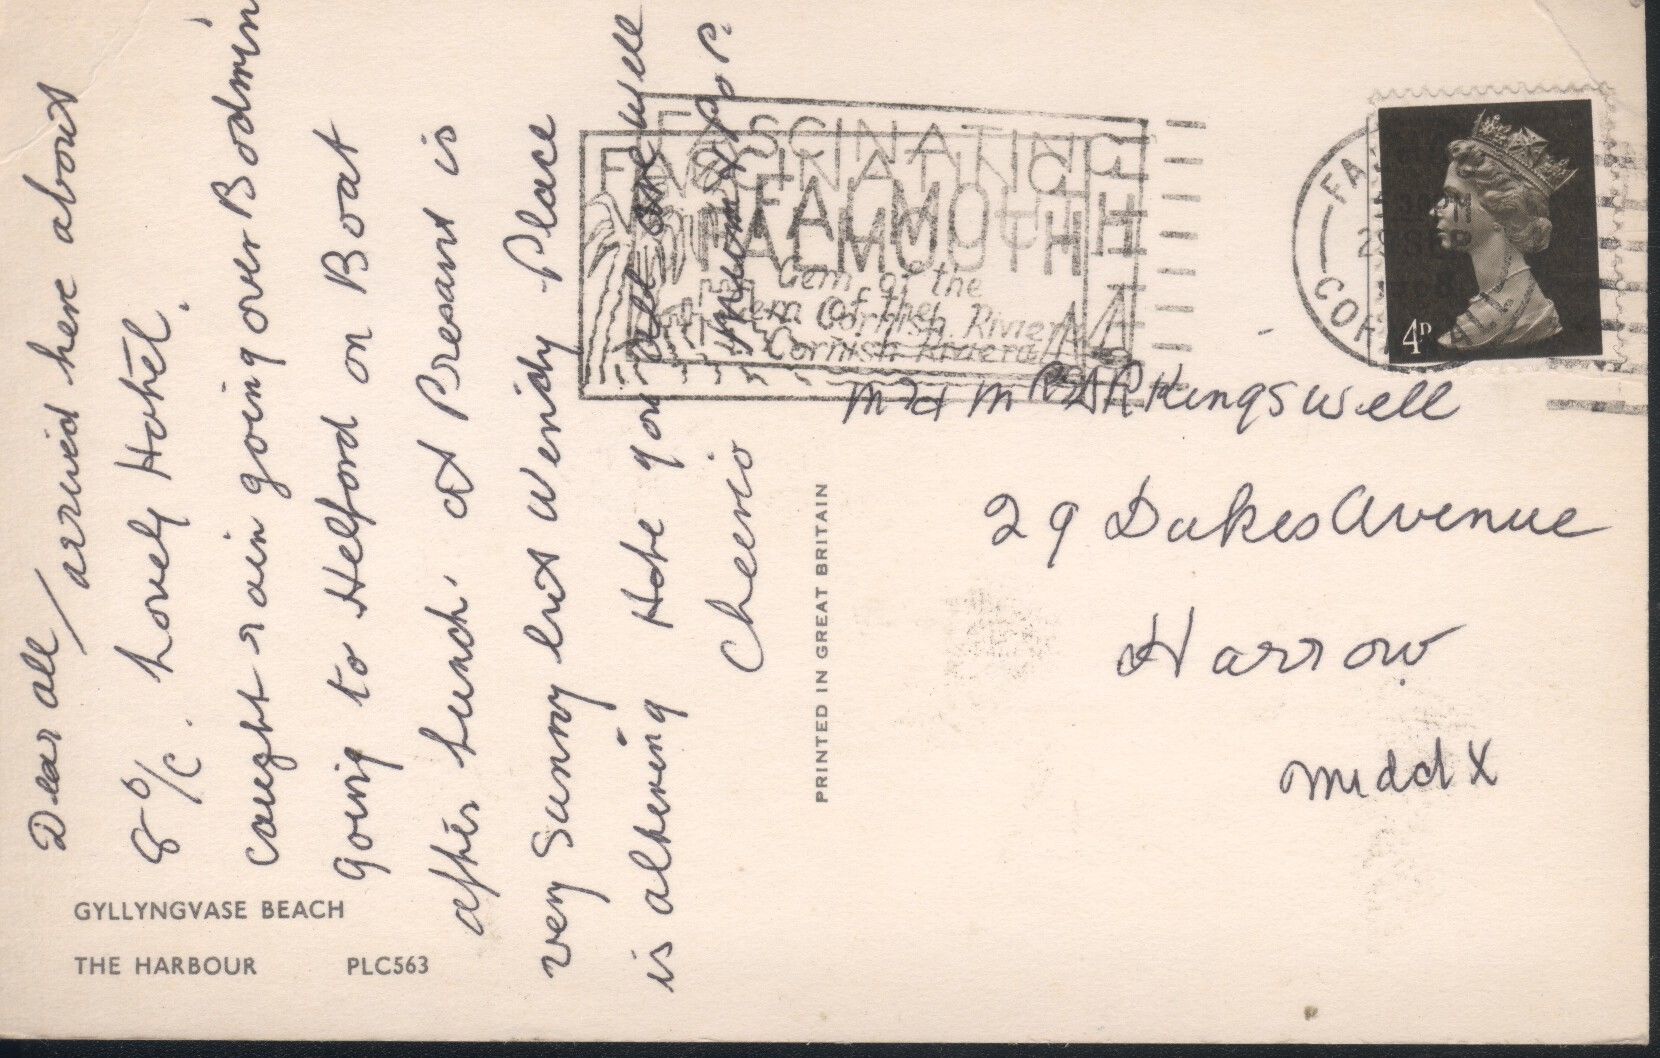 Dear all
arrived here about
8 o/c. Lovely Hotel.
caught rain going over Bodmin
going to Helford on Boat
after Lunch. at Presant is
very Sunny but Windy Place
is altering Hope you all are well
Cheerio Mum & Pop.
GYLLYNGVASE BEACH
THE HARBOUR PLC563
PRINTED IN GREAT BRITAIN
FASCINATING
FALMOUTH
Gem of the
Cornish Riviera
FASCINATING
FALMOUTH
Gem of the
Cornish Riviera
4D
Kingswell
29 Dukes Avenue
Harrow
Middx